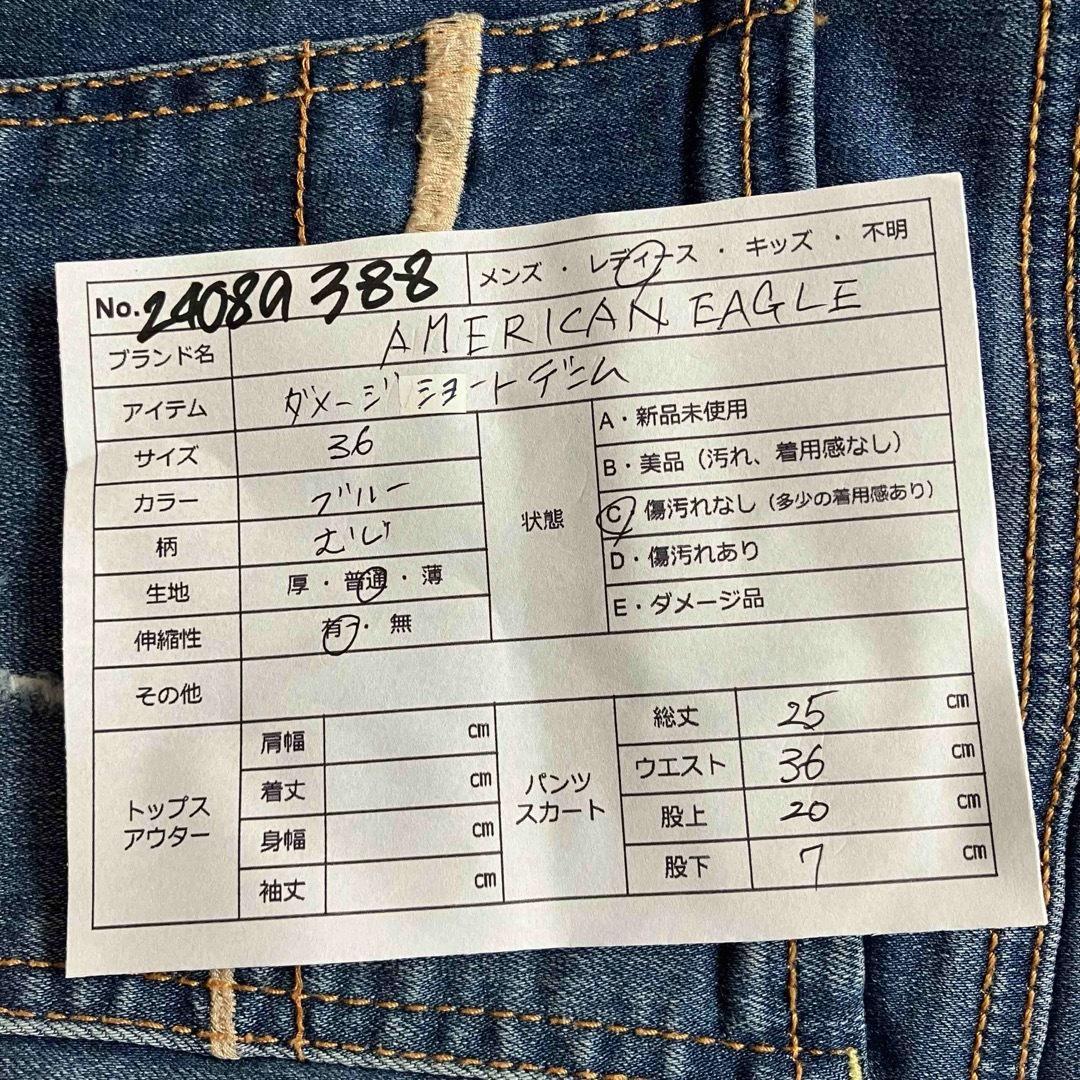 No. 24089 388 メンズ ・ レディース ・ キッズ ・ 不明
ブランド名 AMERICAN EAGLE
アイテム ダメージショートデニム
サイズ 36
カラー ブルー
柄 むじ
生地 厚 ・ 普通 ・ 薄
伸縮性 有 ・ 無
状態
A・新品未使用
B・美品（汚れ、着用感なし）
C・傷汚れなし（多少の着用感あり）
D・傷汚れあり
E・ダメージ品
その他
トップス
アウター
肩幅 cm
着丈 cm
身幅 cm
袖丈 cm
パンツ
スカート
総丈 25 cm
ウエスト 36 cm
股上 20 cm
股下 7 cm